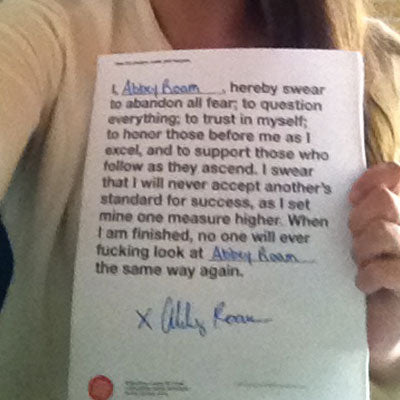 I, Abby Roam, hereby swear
to abandon all fear; to question
everything; to trust in myself;
to honor those before me as I
excel, and to support those who
follow as they ascend. I swear
that I will never accept another's
standard for success, as I set
mine one measure higher. When
I am finished, no one will ever
fucking look at Abby Roam
the same way again.
X Abby Roam